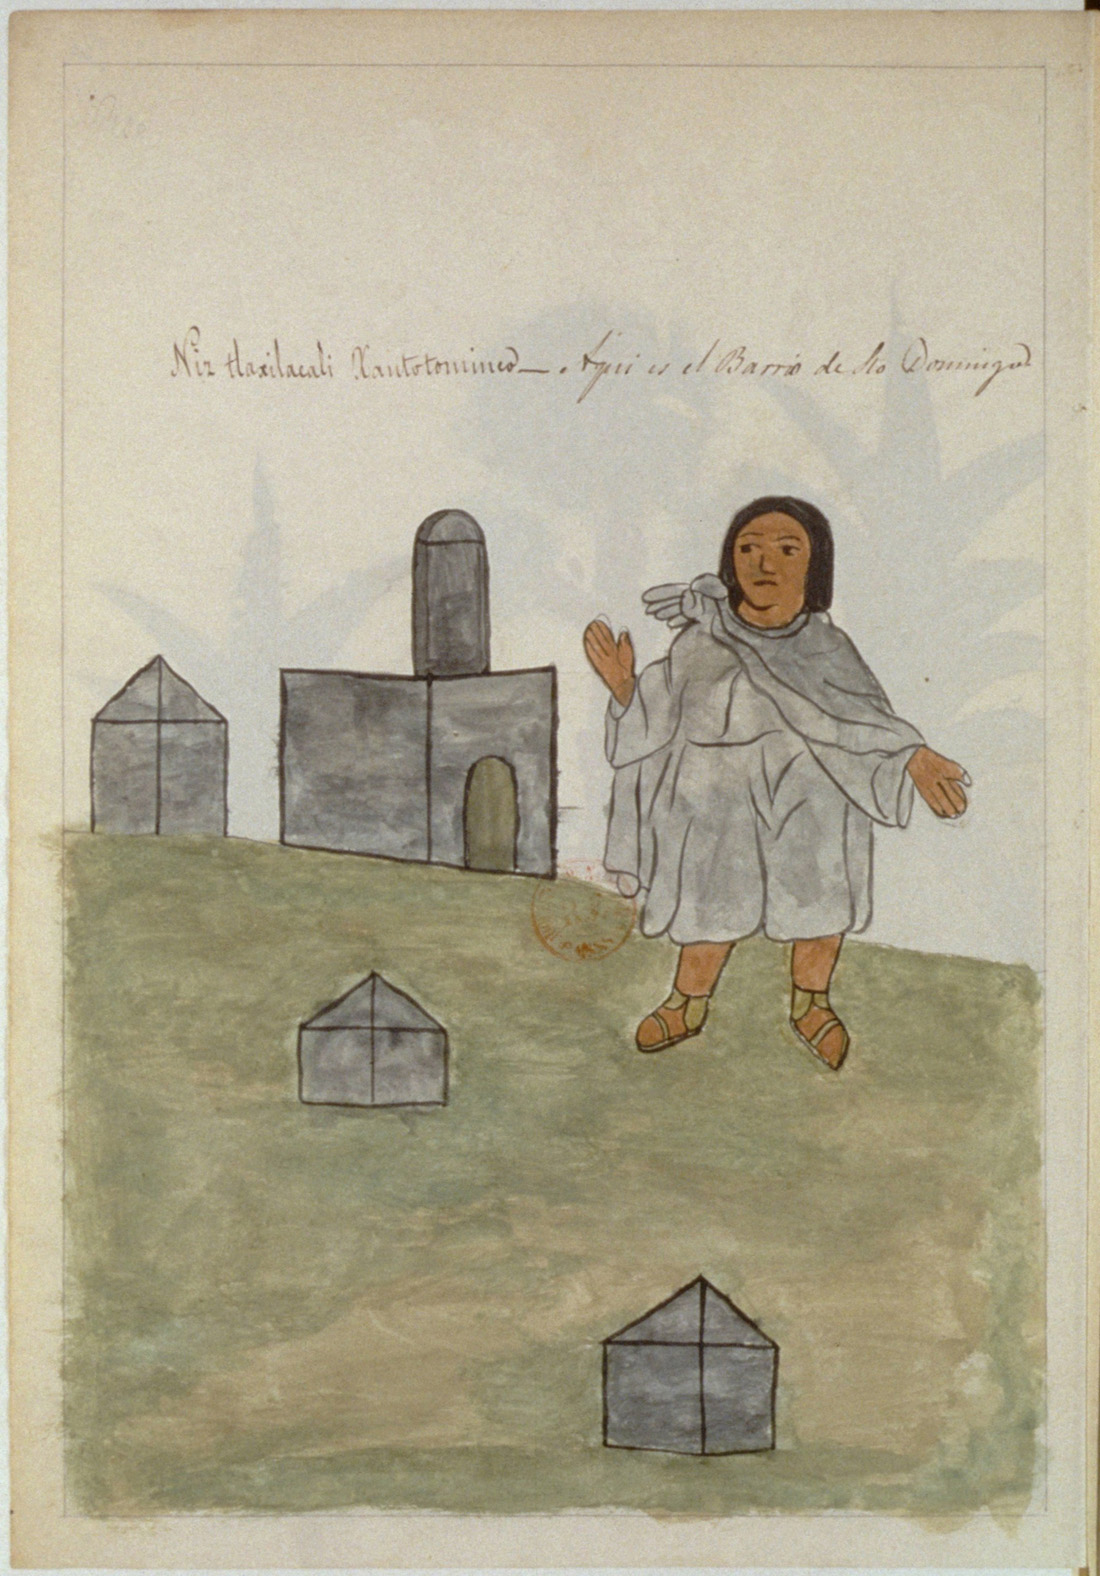 Niz tlaxilacali Xantotominco — . Aqui es el Barrio de Sto Domingo